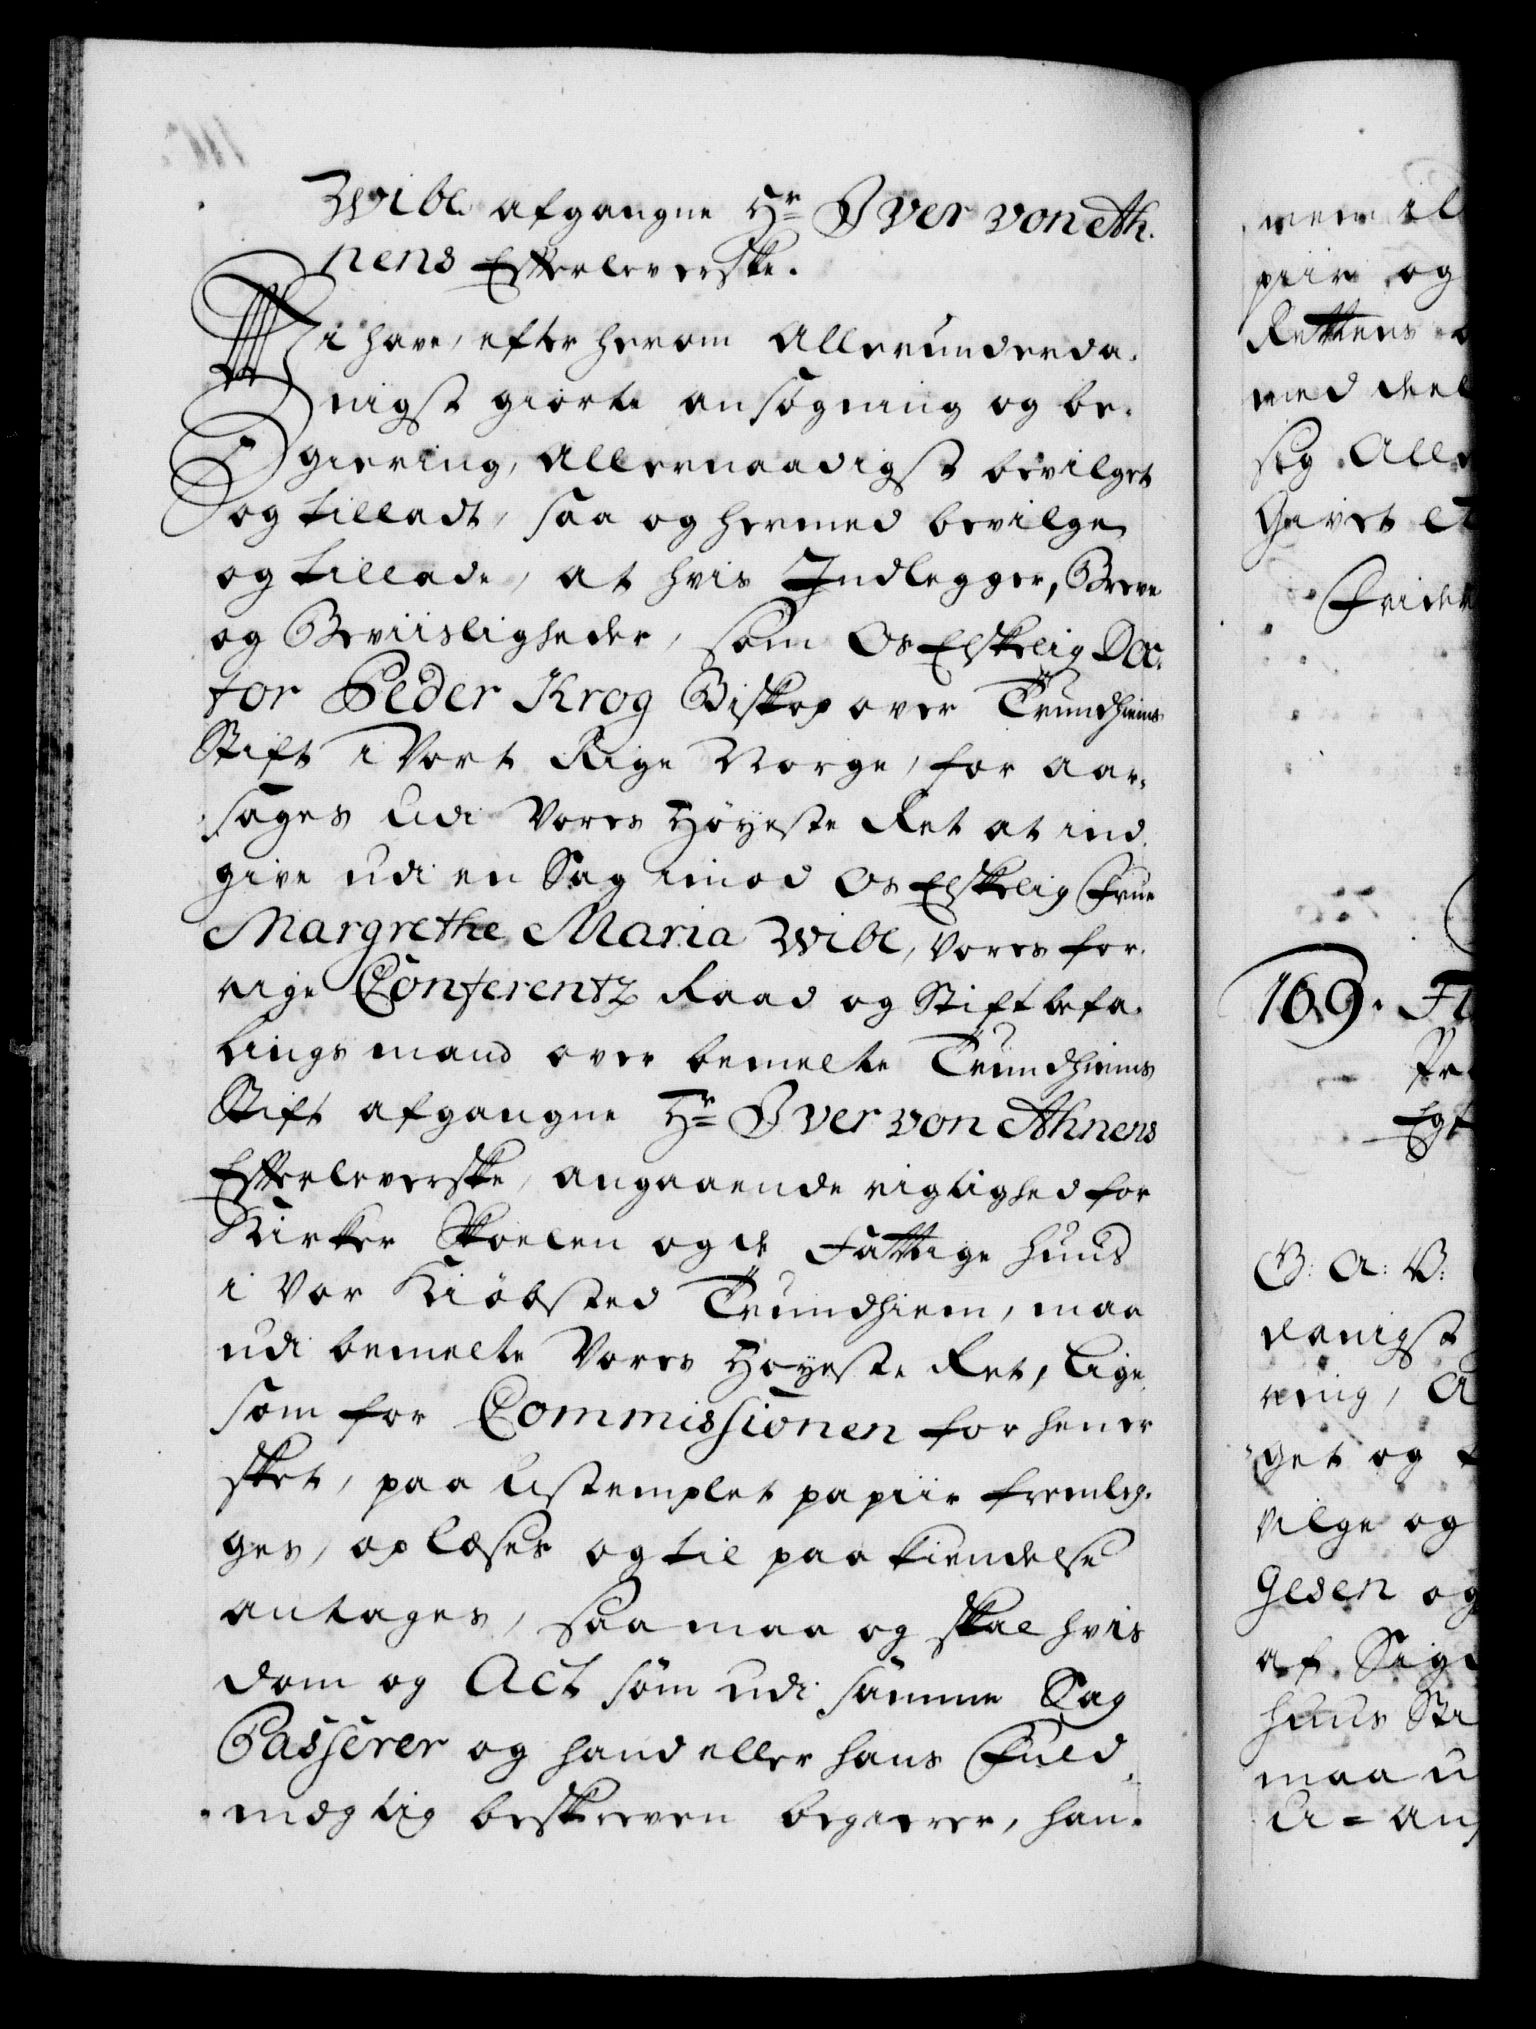 Wibe afgangne Hr Iver von Ah-
nens Efterleverske.
Wi have, efter herom allerunderda-
nigst giorte ansøgning og be-
giering, allernaadigst bevilget
og tilladt, saa og hermed bevilge
og tillade, at hvis Indlegger, Breve
og Beviisligheder, som Os Elskelig Doc-
tor Peder Krog Biskop over Trundhiems
Stift i Vort Rige Norge, for aar-
sages udi Vores Høyeste Ret at ind-
give udi en Sag imod Os Elskelig Frue
Margrethe Maria Wibe, Vores for-
rige Conferentz Raad og Stiftbefa-
lings mand over bemelte Trundhiems
Stift afgangne Hr Iver von Ahnens
Efterleverske, angaaende rigtighed for
Kirker Skoelen og de Fattige huus
i Vor Kiøbsted Trundhiem, maa
udi bemelte Vores Høyeste Ret, lige
som for Commissionen forhen er
sket, paa ustemplet papiir fremleg-
ges, oplæses og til paakiendelse
antages, saa maa og skal hvis
dom og Act som udi samme Sag
Passerer og hand eller hans Fuld-
mægtig beskreven begierer, han-
piir og
Rettens
med deel
sig Alle
Givet
Frider
169. Fl
G: A: V:
danigst
ring, A
get og
vilge og
gesen og
af Sig
huus Sti
maa u